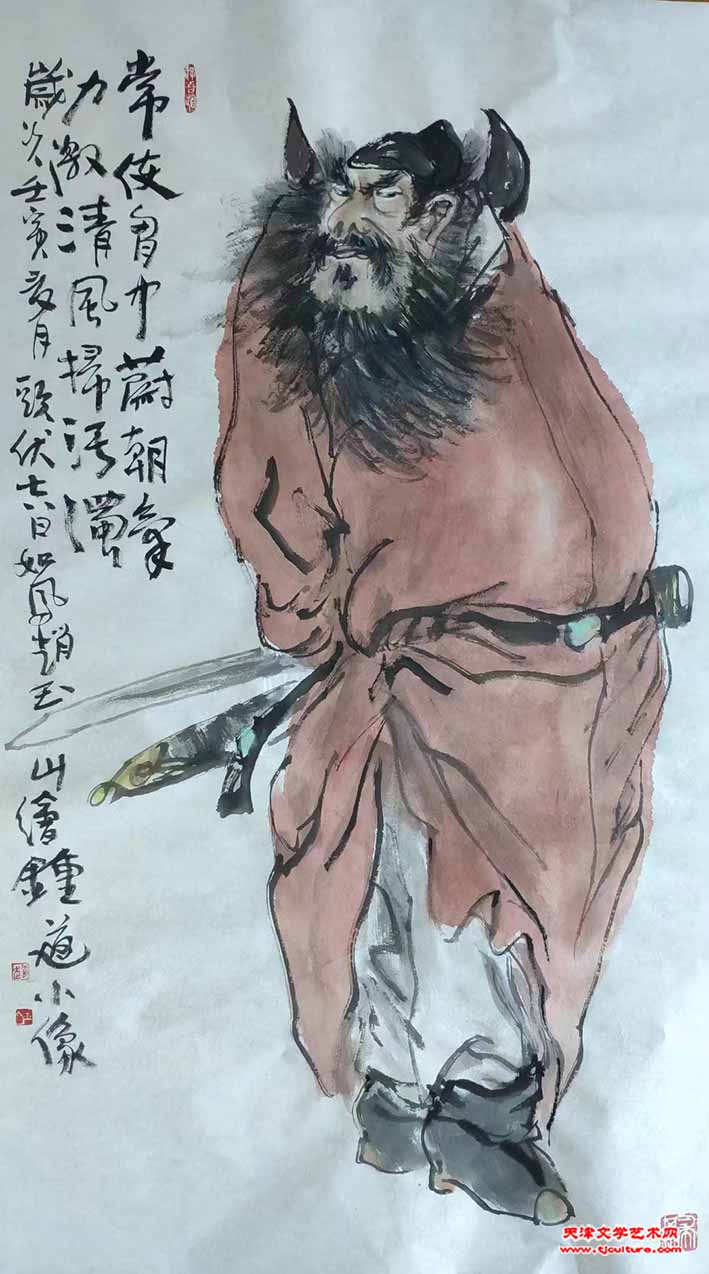 常使胸中蔚朝气
力激清风扫污浊
歲次壬寅夏月頭伏十六日如風趙玉山繪鍾馗小像
天津文学艺术网
www.tjculture.com